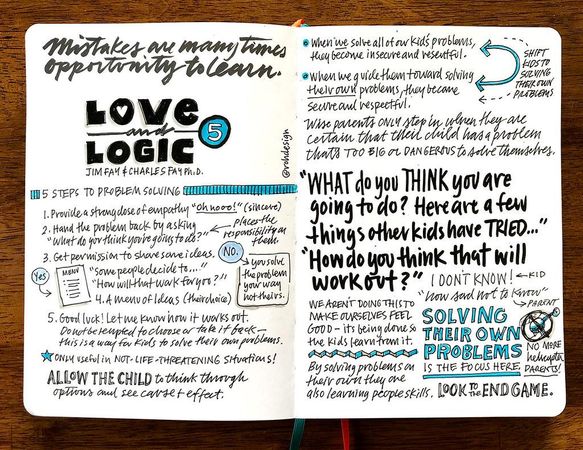 Mistakes are many times
opportunity to learn.
LOVE
and
LOGIC
5
JIM FAY & CHARLES FAY Ph.D.
@rohdesign
5 STEPS TO PROBLEM SOLVING
1. Provide a strong dose of empathy "Oh nooo!" (sincere)
2. Hand the problem back by asking
"what do you think you're going to do?"
places the
responsibility on
them.
3. Get permission to share some ideas.
No.
Yes
MENU
"Some people decide to..."
"How will that work for you?"
4. A menu of Ideas (their choice)
you solve
the problem
your way
not theirs.
5. Good luck! Let me know how it works out.
Do not be tempted to choose or take it back—
this is a way for kids to solve their own problems.
ONLY useful in NOT-LIFE-THREATENING SITUATIONS!
ALLOW THE CHILD to think through
options and see cause & effect.
When we solve all of our kid's problems,
they become insecure and resentful.
When we guide them toward solving
their own problems, they become
secure and respectful.
SHIFT
KIDS TO
SOLVING
THEIR OWN
PROBLEMS
Wise parents ONLY step in when they are
certain that their child has a problem
that's TOO BIG or DANGEROUS to solve themselves.
"WHAT do you THINK you are
going to do? Here are a few
things other kids have TRIED..."
"How do you think that will
work out?"
I DON'T KNOW!
KID
"How sad not to know"
PARENT
WE AREN'T DOING THIS TO
MAKE OURSELVES FEEL
GOOD – it's being done so
the kids learn from it.
By solving problems on
their own they are
also learning people skills.
SOLVING
THEIR OWN
PROBLEMS
IS THE FOCUS HERE
NO MORE
helicopter
PARENTS!
LOOK TO THE END GAME.